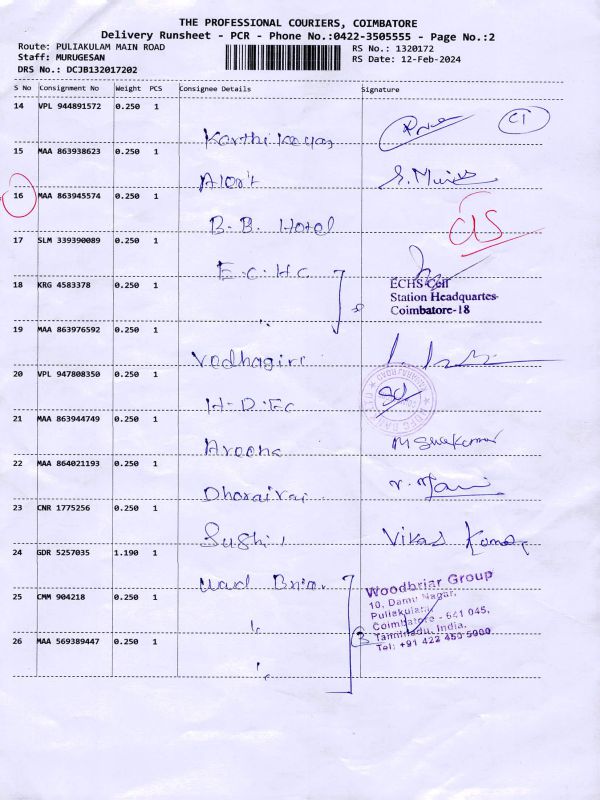 THE PROFESSIONAL COURIERS, COIMBATORE
Delivery Runsheet - PCR - Phone No.:0422-3505555 - Page No.:2
Route: PULIAKULAM MAIN ROAD
RS No.: 1320172
Staff: MURUGESAN
RS Date: 12-Feb-2024
DRS No.: DCJB132017202
S No Consignment No Weight PCS Consignee Details Signature
14 VPL 944891572 0.250 1
Karthikeyan
15 MAA 863938623 0.250 1
Alort
16 MAA 863945574 0.250 1
B.B. Hotel
17 SLM 339390089 0.250 1
E.C.H.C
18 KRG 4583378 0.250 1
ECHS Cell
Station Headquartes
Coimbatore-18
19 MAA 863976592 0.250 1
Vedhagiri
20 VPL 947808350 0.250 1
H-D.F.C
21 MAA 863944749 0.250 1
Aroona M Sivakumar
22 MAA 864021193 0.250 1
Dhorairaj
23 CNR 1775256 0.250 1
Sushil Vikas Kumar
24 GDR 5257035 1.190 1
Wood Briar
25 CMM 904218 0.250 1
Woodbriar Group
10, Damu Nagar,
Puliakulam
Coimbatore - 641 045,
Tamilnadu, India.
Tel: +91 422 450 5000
26 MAA 569389447 0.250 1